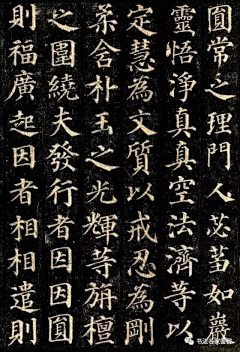 圓常之理門人苾蒭如巖
靈悟淨真真空法濟等以
定慧為文質以戒忍為剛
柔含朴玉之光輝等旃檀
之圍繞夫發行者因因圓
則福廣起因者相相遣則